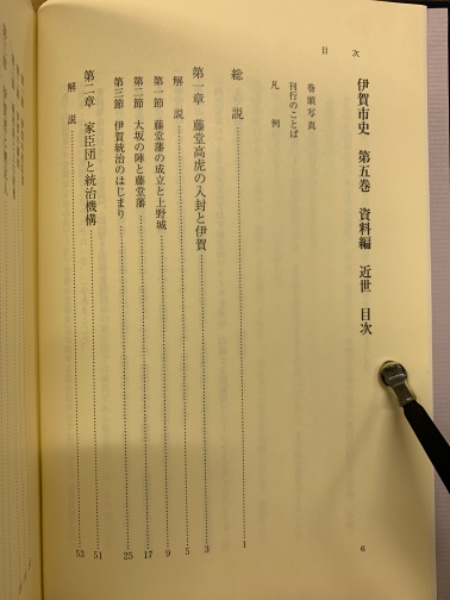 目次
伊賀市史 第五巻 資料編 近世 目次
巻頭写真
刊行のことば
凡例
総説……1
第一章 藤堂高虎の入封と伊賀……3
解説……5
第一節 藤堂藩の成立と上野城……9
第二節 大坂の陣と藤堂藩……17
第三節 伊賀統治のはじまり……25
第二章 家臣団と統治機構……51
解説……53
6